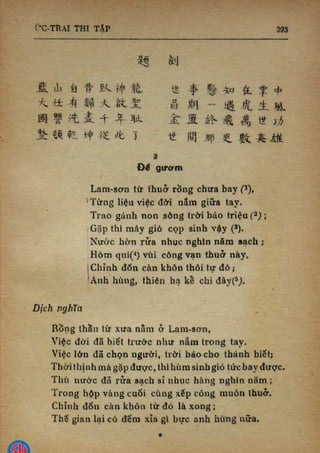 ỨC-TRAI THI TẬP 293
題 劍
藍山自昔臥神龍 世事懸知在掌中
大任有歸天啟聖 昌期一遇虎生風
國讐洗盡千年恥 金匱終藏萬世功
整頓乾坤從此了 世間那更數英雄
Đề gươm
Lam-sơn từ thuở rồng chưa bay (¹),
Từng liệu việc đời nắm giữa tay.
Trao gánh non sông trời báo triệu (²) ;
Gặp thì mây gió cọp sinh vậy (³).
Nước hờn rửa nhục nghìn năm sạch ;
Hòm quí(⁴) vùi công vạn thuở nảy.
Chỉnh đốn càn khôn thôi tự đó ;
Anh hùng, thiên hạ kể chi đây(⁵).
Dịch nghĩa
Rồng thần từ xưa nằm ở Lam-sơn,
Việc đời đã biết trước như nắm trong tay.
Việc lớn đã chọn người, trời báo cho thánh biết;
Thời thịnh mà gặp được, thì hùm sinh gió tức bay được.
Thù nước đã rửa sạch sỉ nhục hàng nghìn năm ;
Trong hộp vàng cuối cùng xếp công muôn thuở.
Chỉnh đốn càn khôn từ đó là xong ;
Thế gian lại có đếm xỉa gì bực anh hùng nữa.
*